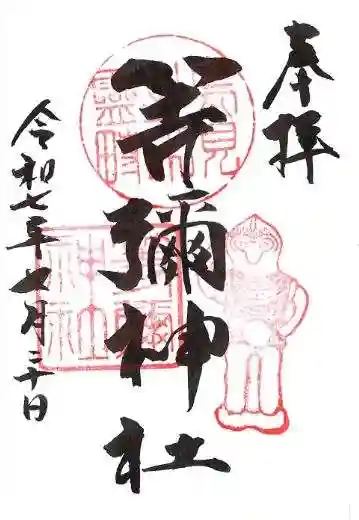 奉拝
等彌神社
令和七年七月二十日